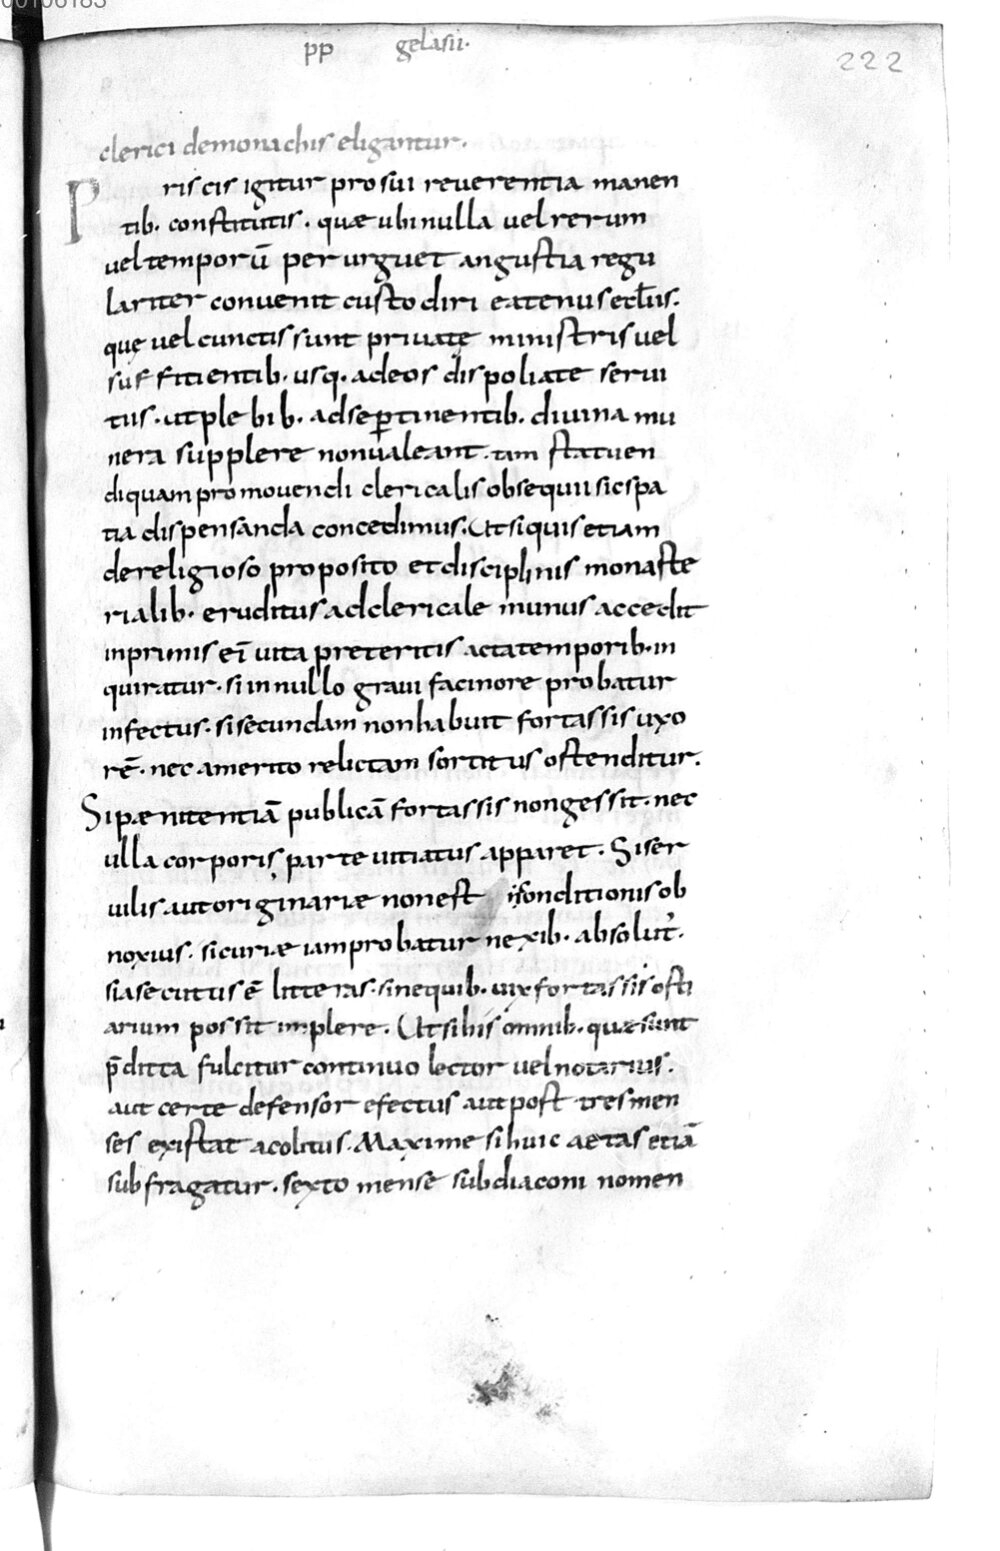 00106183
pp gelasii·
222
clerici demonachis eligantur·
Priscis igitur pro sui reverentia manen
tib· constitutis· quæ ubi nulla vel rerum
vel temporū per urguet angustia regu
lariter convenit custodiri eatenus
quę vel cunctis sunt privatę ministris vel
suffitientib· usq· adeos dispoliate servi
tus· ut plebib· ad se ꝑtinentib· divina mu
nera supplere non valeant· tam statuen
di quam promovendi clericalis obsequii sic spa
tia dispensanda concedimus· Ut si quis etiam
de religioso proposito et disciplinis monaste
rialib· eruditus ad clericale munus accedit
inprimis eī vita preteritis acta temporib· in
quiratur· si in nullo gravi facinore probatur
infectus· si secundam non habuit fortassis uxo
rē· nec a merito relictam sortitus ostenditur·
Si pænitentiā publicā fortassis non gessit· nec
ulla corporis parte vitiatus apparet· Si ser
vilis aut originariæ non est conditionis ob
noxius· si curiæ iam probatur nexib· absolut·
si asecutus ē litteras· sine quib· vix fortassis osti
arium possit implere· Ut si his omnib· quæ sunt
p̄dicta fulcitur continuo lector vel notarius·
aut certe defensor efectus aut post tres men
ses existat acolitus· Maxime si huic aetas etiā
subfragatur· sexto mense subdiaconi nomen